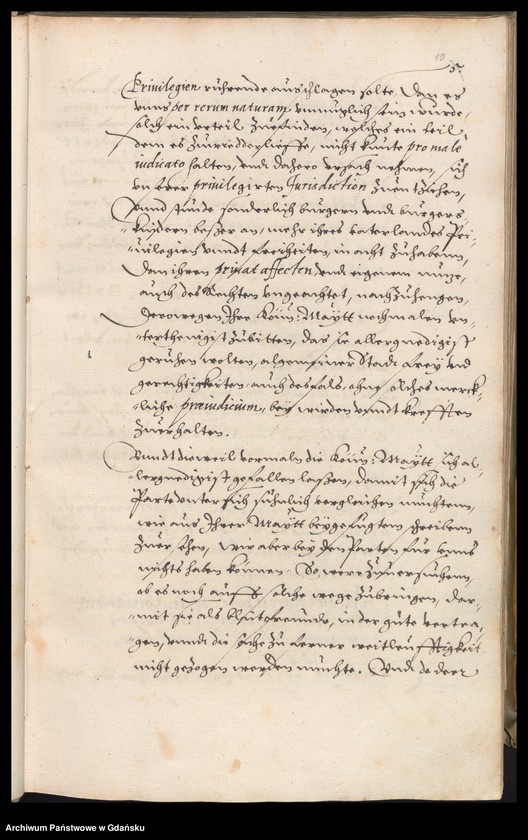 10
5.
Privilegien rührende ausschlagen solte. Dan es
uns per rerum naturam unmüglich sein würde,
solch ein urteil zuefinden, welches ein teil,
dem es zuwidderlieffe, nicht kunte pro male
iudicato halten, undt dahero ursach nehmen, sich
unserer privilegirten Jurisdiction zuentziehen,
Unnd stunde sonderlich bürgern undt bürgers-
kindern besser an, mehr ihres Vaterlandes Pri-
vilegien unndt freiheiten, in acht zuhabenn,
Dan ihren privat affecten, undt eigenem nutze,
auch des Rechten ungeachtet, nachzuhengen,
Derowegen Ihre Kön: Maytt nochmalen un-
terthenigst zubitten, das sie allergnedigst
geruhen wolten, algemeiner Stadt frey und
gerechtigkeiten auch desfals, ohne solches merck-
liche præiudicium, bey wirden unndt krefften
zuerhalten.
Unndt dieweil vormaln die Kön: Maytt sich al-
lergnedigist gefallen lassen, damit sich die
Parte unter sich sühnlich vergleichen müchtenn,
wie aus Ihrer Maytt beygefügtem schreibenn
zuersehen, wir aber bey den Parten für unns
nichts haben können. So were zuversuchenn,
ob es noch auff solche wege zubringen, dar-
mit sie als Blutsfreunde, in der güte vertra-
gen, unndt die sache zu ferner weitleufftigkeit
nicht gezogen werden müchte. Undt do der
Archiwum Państwowe w Gdańsku